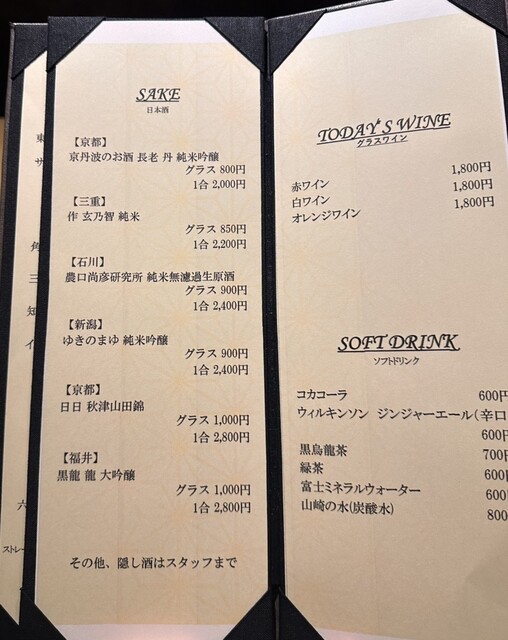 SAKE
日本酒
【京都】
京丹波のお酒 長老 丹 純米吟醸
グラス 800円
1合 2,000円
【三重】
作 玄乃智 純米
グラス 850円
1合 2,200円
【石川】
農口尚彦研究所 純米無濾過生原酒
グラス 900円
1合 2,400円
【新潟】
ゆきのまゆ 純米吟醸
グラス 900円
1合 2,400円
【京都】
日日 秋津山田錦
グラス 1,000円
1合 2,800円
【福井】
黒龍 龍 大吟醸
グラス 1,000円
1合 2,800円
その他、隠し酒はスタッフまで
TODAY'S WINE
グラスワイン
1,800円
赤ワイン
1,800円
白ワイン
1,800円
オレンジワイン
SOFT DRINK
ソフトドリンク
コカコーラ 600円
ウィルキンソン ジンジャーエール(辛口
600円
黒烏龍茶 700円
緑茶 600円
富士ミネラルウォーター 600円
山崎の水(炭酸水) 800
サ
角
三
知
イ
六
ストレー